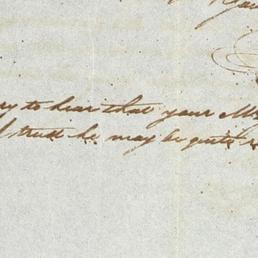 ry to hear that your
I trust he may be quite